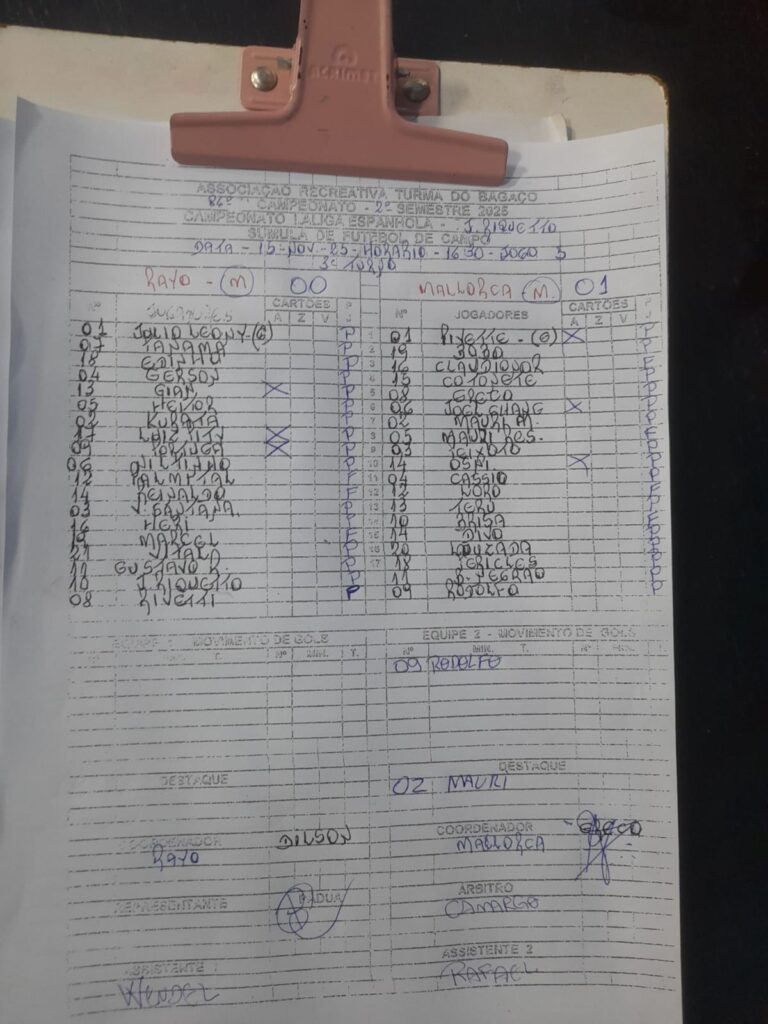 ACRIMET
ASSOCIAÇÃO RECREATIVA TURMA DO BAGAÇO
86º CAMPEONATO - 2º SEMESTRE 2025
CAMPEONATO LALIGA ESPANHOLA - J. RIQUETTO
SUMULA DE FUTEBOL DE CAMPO
DATA - 15 - NOV - 25 - HORARIO - 16:30 - JOGO 3
3º TURNO
RAYO - (M) 00 MALLORCA (M) 01
Nº JOGADORES CARTÕES P Nº JOGADORES CARTÕES P
A Z V J A Z V J
01 JULIO LEONY - (G) P 1 01 PIVETTE - (G) X P
07 TANAMA P 2 19 JOJO P
18 EDINHO P 3 16 CLAUDIONOR F
04 GERSON P 4 15 COTONETE P
13 GIAN X P 5 08 GRECO P
05 HEITOR P 6 06 JOEL CHANG X P
02 KURATA P 7 02 MAURI M. P
17 LUIZ TITY X P 8 05 MAURI RES. P
09 X P 9 03 TEIXOTO P
06 NILTINHO P 10 14 OSNI X P
12 PALMITAL F 11 04 CASSIO P
14 REINALDO F 12 12 NORO F
03 J. SANTANA P 13 13 TERU P
16 HERI P 14 10 BRISA F
19 MARCEL F 15 14 DINO P
21 VITALA P 16 20 LOUZADA P
11 GUSTAVO R. P 17 18 PERICLES P
10 J. RIQUETTO P 11 B. NEGRÃO P
08 RIVETTI P 09 RODOLFO P
EQUIPE 1 - MOVIMENTO DE GOLS EQUIPE 2 - MOVIMENTO DE GOLS
Nº MIN. T. Nº MIN. T. Nº MIN. T. Nº MIN. T.
09 RODOLFO
DESTAQUE DESTAQUE
02 MAURI
COORDENADOR DILSON COORDENADOR GRECO
RAYO MALLORCA
REPRESENTANTE PADUA ARBITRO
CAMARGO
ASSISTENTE 1 ASSISTENTE 2
WENDEL RAFAEL